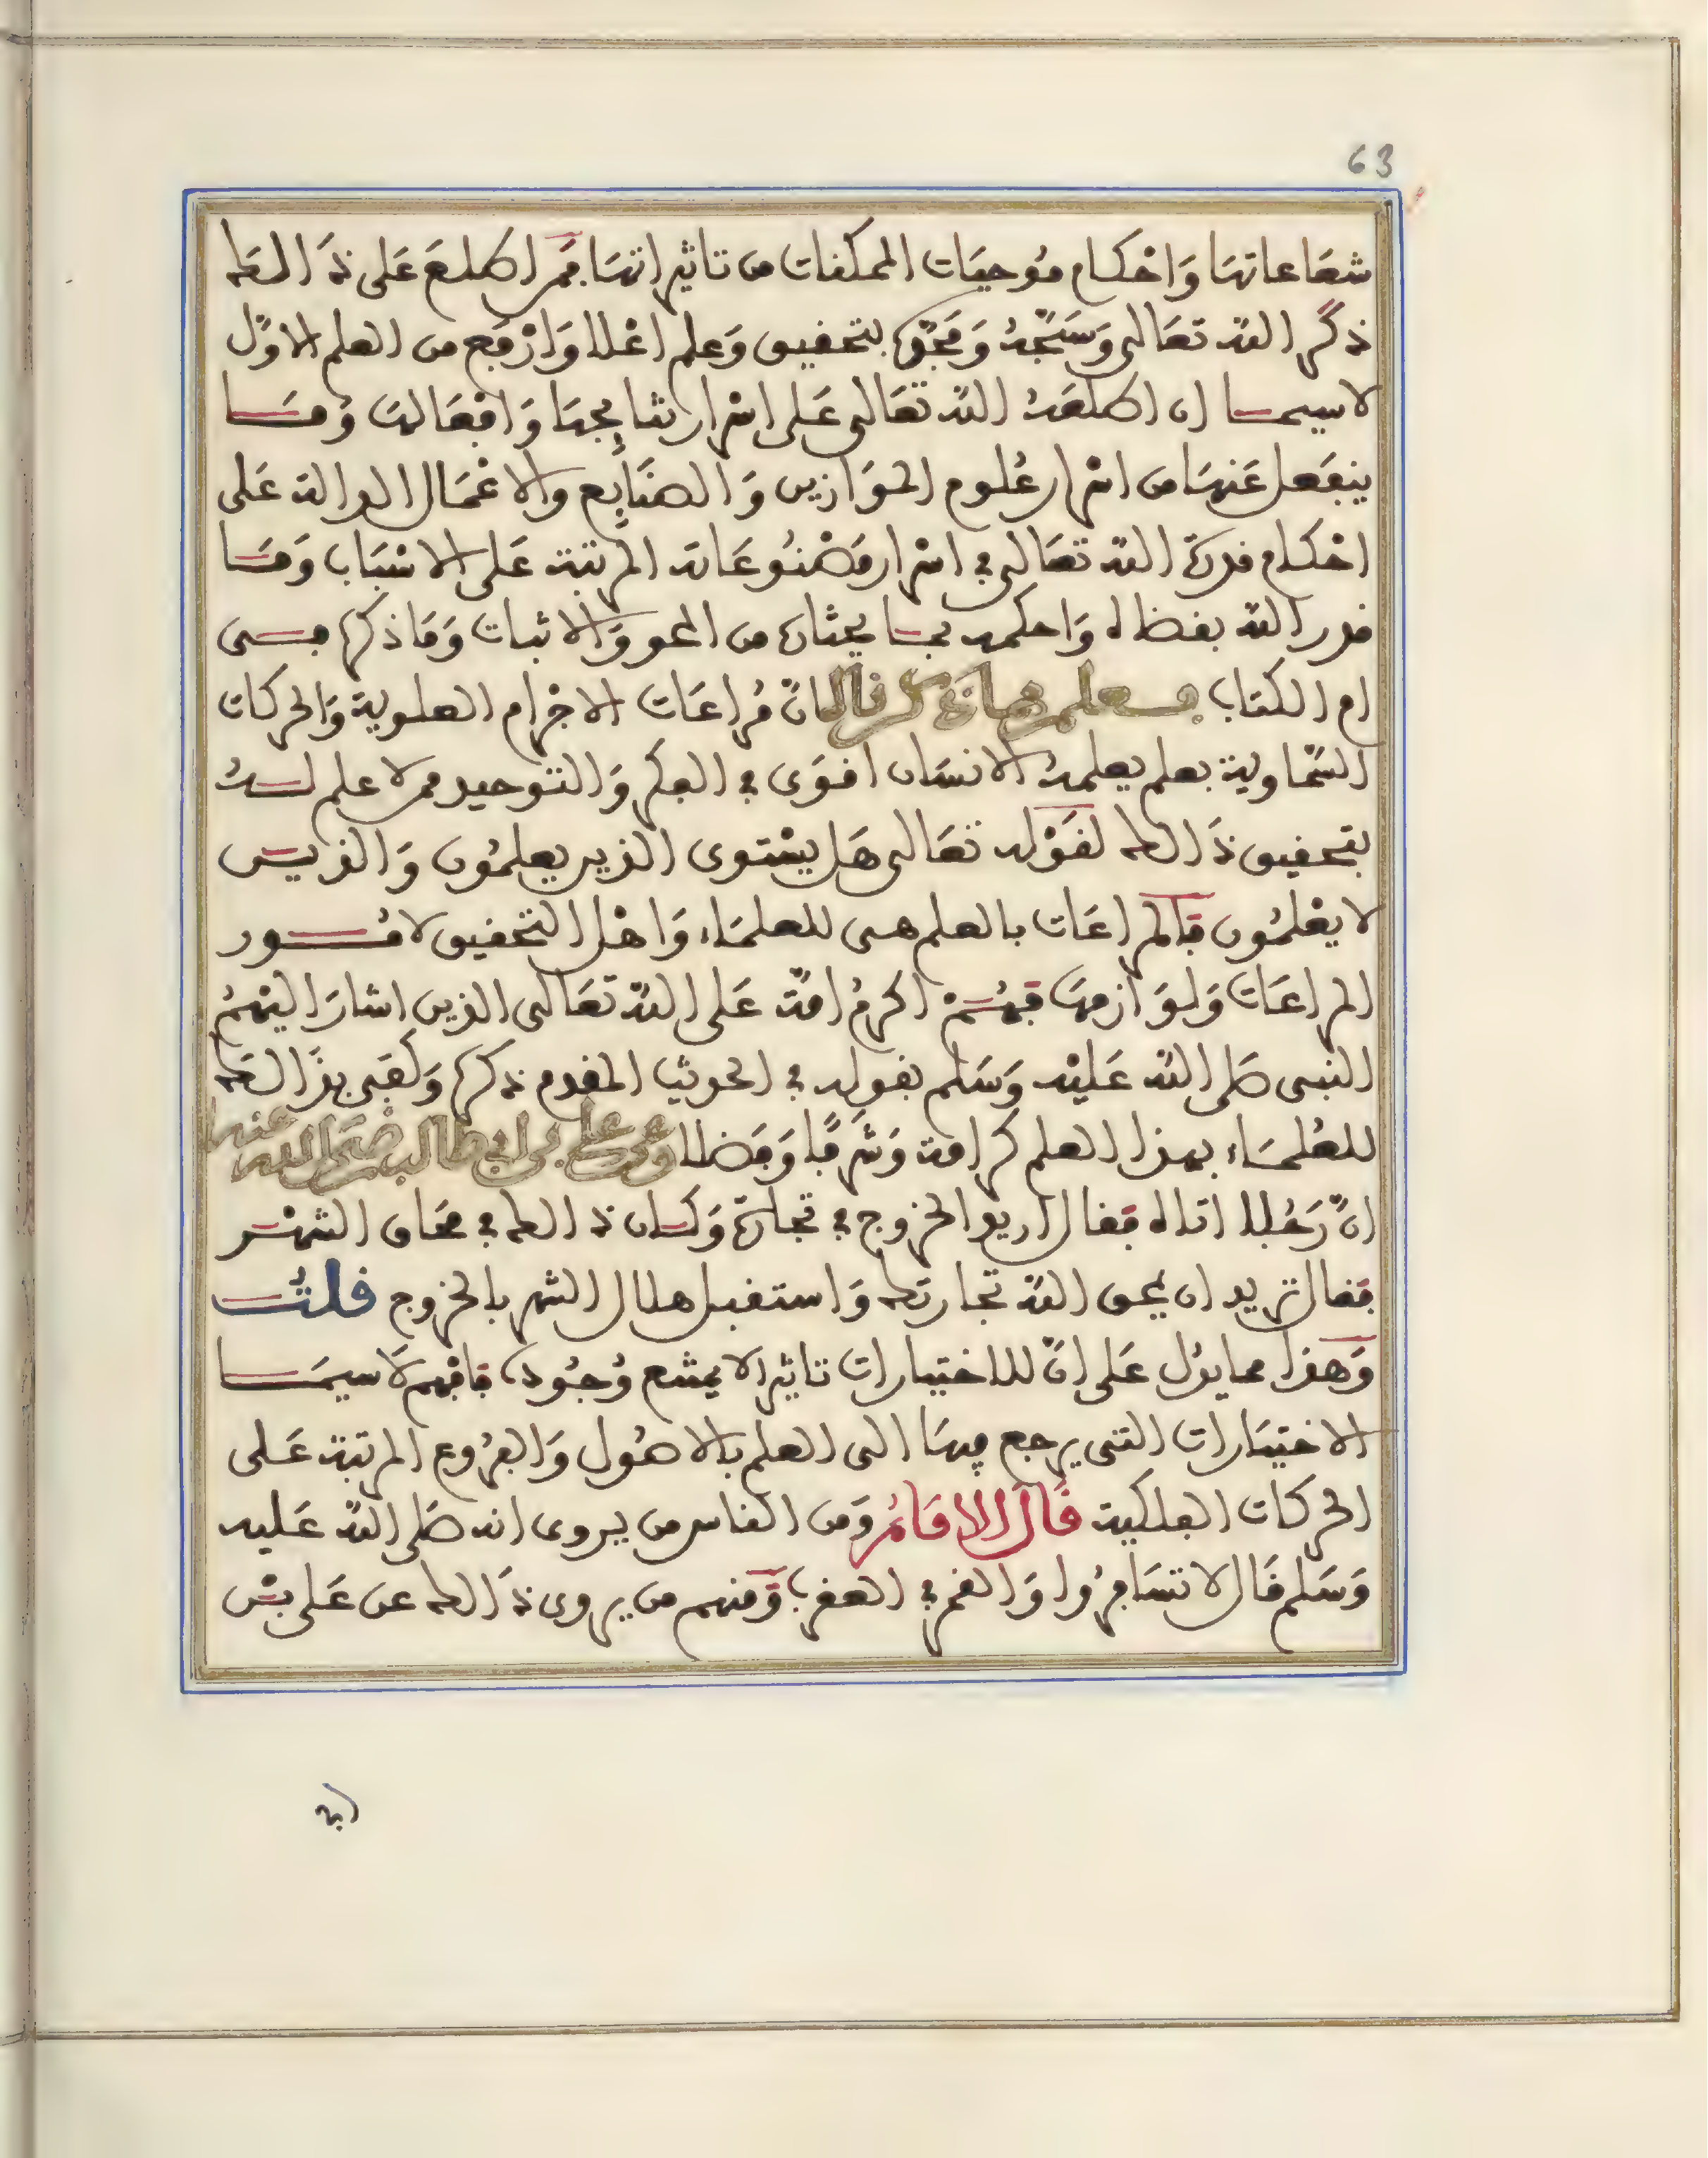 63
شعَاعاتهَا وَاحْكام مُوجبَات الممكنات من تاثيراتهَا فمَن اطلعَ عَلى ذَالكَ
ذكَر اللهَ تعَالى وَسَبّحهُ وَمَجّدَه بتحقيق وَعلم اعْلا وَارْفَع من العلم الاوّل
لاسيما ان اطلعَهُ اللهُ تعَالى عَلى اسْرار نتايجهَا وَافعَالهَا وَمَا
ينفَعل عَنهَا من اسْرار عُلوم الموَازين وَالصنَايِع والاعْمَال الدالة عَلى
احْكام قدرة الله تعَالى في اسْرار مَصْنُوعَاته المرتبة عَلى الاسْبَاب وَمَا
قدر الله بقضاه وَاحكمه بما يمثاه من المحو وَالاثبات وَمَا ذكره في
ام الكتاب فعلم مما ذكرناه انّ مُراعَات الاجْرام العلوية وَالحركات
السّماوية بعلم يعلمهُ الانسَان اقوَى في الفكر وَالتوحيد ممن لا علم لهُ
بتحقيق ذَالك لقَوْله تعَالى هَل يسْتوى الذين يعلمُون وَالذين
لا يعْلمُون فالمراعَات بالعلم هى للعلمَاء وَاهْل التحقيق لامُور
المراعَات وَلوَازمهَا فهُمْ اكرمُ امّة عَلى اللهَ تعَالى الذين اشارَ اليْهمُ
النبى صَلى اللهُ عَليْه وَسَلم بقوله في الحديث المقدم ذكره وَكفى بذَالكَ
للعُلمَاء بهذا العلم كرامة وَشرفًا وَفضلا وعن على بن ابى طالب رضى الله عنه
انّ رَجُلا اتاه فقال اريد الخروج في تجارة وَكان ذالك في محَاق الشهْر
فقال تريد ان يمحق اللهُ تجارتكَ وَاستقبل هلال الشهر بالخروج قلتُ
وَهذا مما يدُل عَلى انّ للاختيارات تاثيرا لا يمتنع وُجُوده فافهم لَاسيمَا
الاختيَارات التى يرجع فيهَا الى العلم بالاصُول وَالفرُوع المرتبة عَلى
الحركات الفلكية قَالَ الامَامُ وَمن الناس من يروى انه صَلى اللهُ عَليه
وَسَلم قَال لا تسَافرُوا وَالقمر في العقرب وَمنهم من يروى ذَالك عن عَلى بْن
ابى